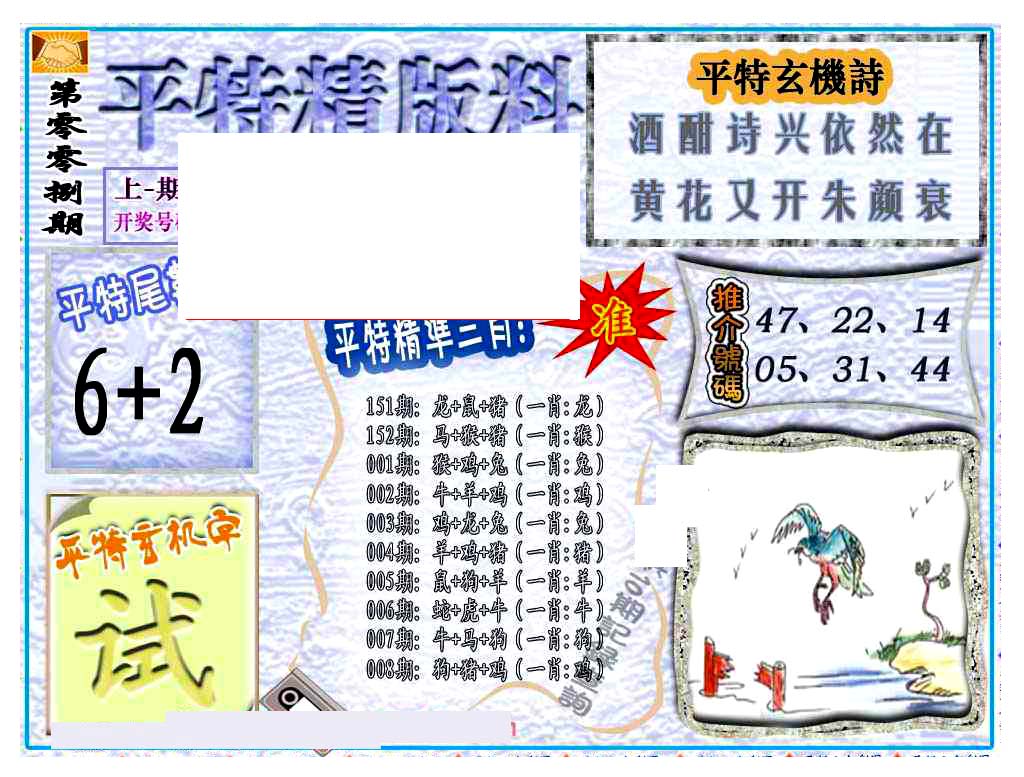 第零零捌期
平特精版料
上-期
开奖号
平特玄機詩
酒酣诗兴依然在
黄花又开朱颜衰
平特尾
6+2
平特精準三肖!
准
推介號碼
47、22、14
05、31、44
151期: 龙+鼠+猪 (一肖:龙)
152期: 马+猴+猪 (一肖:猴)
001期: 猴+鸡+兔 (一肖:兔)
002期: 牛+羊+鸡 (一肖:鸡)
003期: 鸡+龙+兔 (一肖:兔)
004期: 羊+鸡+猪 (一肖:猪)
005期: 鼠+狗+羊 (一肖:羊)
006期: 蛇+虎+牛 (一肖:牛)
007期: 牛+马+狗 (一肖:狗)
008期: 狗+猪+鸡 (一肖:鸡)
平特玄机字
试